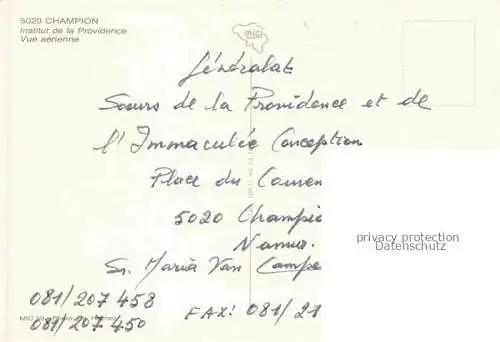 5020 CHAMPION
Institut de la Providence
Vue aérienne
MIGI
Généralat
Sœurs de la Providence et de
l'Immaculée Conception
Place du Couven
5020 Champio
Namur.
privacy protection
Datenschutz
Sr. Maria Van Campe
081/207 458
FAX: 081/21
081/207 450